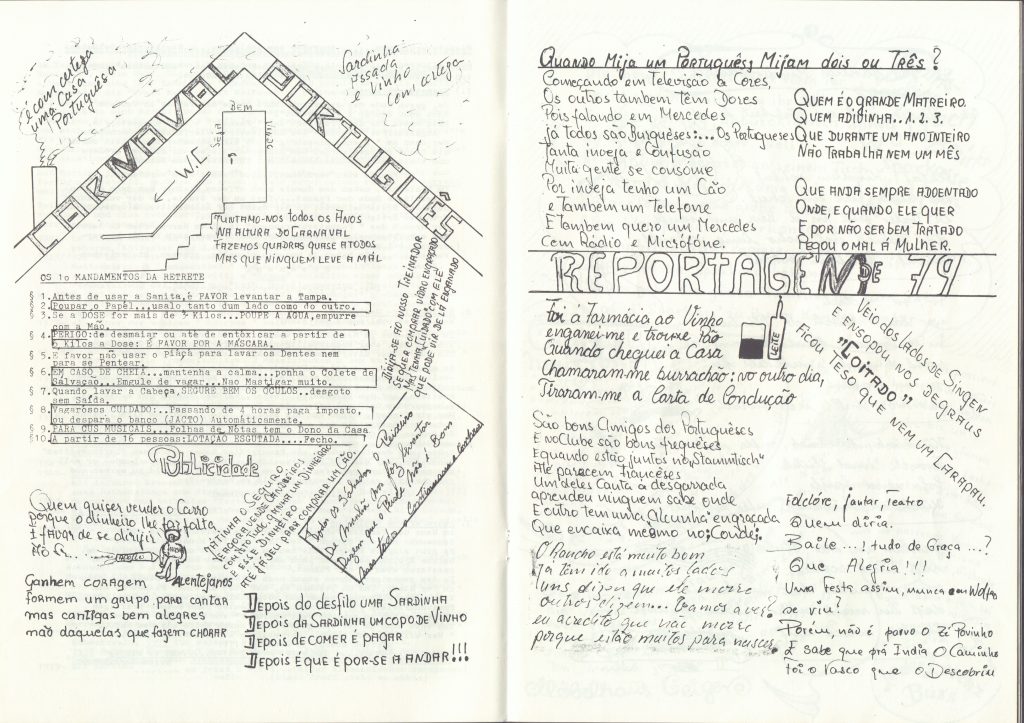 é com certeza
uma Casa
Portuguêsa
CARNAVAL PORTUGUÊS
Sardinha
Assada
e Vinho
com certeza
Bem
W.C
JUNTAMO-NOS todos os ANOS
NA ALTURA DO CARNAVAL
FAZEMOS QUADRAS QUASE A TODOS
MAS QUE NINGUEM LEVE A MÁL
OS 1o MANDAMENTOS DA RETRETE
§ 1.Antes de usar a Sanita,é FAVOR levantar a Tampa.
§ 2.Poupar o Papel...usalo tanto dum lado como do outro.
§ 3.Se a DOSE for mais de 3 Kilos...POUPE A AGUA,empurre
com a Mão.
§ 4.PERIGO:de desmaiar ou até de entóxicar a partir de
5 Kilos a Dose: É FAVOR POR A MÁSCARA.
§ 5.É favor não usar o piaçá para lavar os Dentes nem
para se Pentear.
§ 6.EM CASO DE CHEIA...mantenha a calma...ponha o Colete de
Salvação...Engule de vagar...Nao Mastigar muito.
§ 7.Quando lavar a Cabeça,SEGURE BEM OS OCULOS..desgoto
sem Saida.
§ 8.Vagarósos CUIDADO:..Passando de 4 horas paga imposto,
ou despara o banco (JACTO) Automáticamente.
§ 9.PARA CUS MUSICAIS...Folhas de Nótas tem o Dono da Casa
§ 10.A partir de 16 pessoas:LOTAÇÃO ESGUTADA....Fecho.
DIRIJA-SE AO NOSSO TREINADOR
SE QUER COMPRAR VINHO ENGARRAFADO
MAS TENHA CUIDADO COM ELE
QUE PODE VIR DE LÁ ENGANADO
Publicidade
Quem quiser vender o Carro
Porque o dinheiro lhe faz falta
É FAVOR de se dirigir
Ao
JÁ TINHA O SEGURO
E AGORA VENDE CHOURIÇO,
COM ISTO TUDO GANHA UM DINHEIRÃO
E ESSE DINHEIRO
ATÉ JÁ DEU PARA COMPRAR UM CÃO.
Todos os Sábados o Peixeiro
De
Dizem que o Peixe Não é Bom
ALENTEJANOS
Ganhem coragem
formem um grupo para cantar
mas cantigas bem alegres
não daquelas que fazem CHORAR
Depois do desfilo UMA SARDINHA
Depois da SARDINHA UM COPO DE VINHO
Depois DE COMER É PAGAR
Depois É QUE É POR-SE A ANDAR!!!
QUANDO MIJA UM PORTUGUÊS, MIJAM DOIS OU TRÊS?
Começando em Televisão a Cores,
Os outros tambem Têm Dores
Pois falando em Mercedes
já todos são Burguêses:... Os Portugueses
Tanta inveja e Confusão
Muita gente se consome
Por inveja tenho um Cão
e Tambem um Telefone
E Tambem quero um Mercedes
Com Rádio e Micrófóne.
QUEM É O GRANDE MATREIRO.
QUEM ADIVINHA..1.2.3.
QUE DURANTE UM ANO INTEIRO
NÃO TRABALHA NEM UM MÊS
QUE ANDA SEMPRE ADOENTADO
ONDE, E QUANDO ELE QUER
E POR NÃO SER BEM TRATADO
PEGOU O MAL Á MULHER.
REPORTAGEM DE 79
Fui á farmácia ao Vinho
enganei-me e trouxe Pão
Quando cheguei a Casa
Chamaram-me burrachão: no outro dia,
Tiraram-me a Carta de Condução
LEITE
VEIO DOS LADOS DE SINGEN
E ENSOPOU NOS DEGRAUS
"COITADO"
FICOU TESO QUE NEM UM CARAPAU.
São bons Amigos dos Portuguêses
E no Clube são bons freguêses
E quando estão juntos no "Stammtisch"
Até parecem franceses
Um deles Canta á desgarrada
aprendeu ninguem sabe onde
E outro tem uma Alcunha engraçada
Que encaixa mesmo no; Conde;.
O Rancho está muito bom
Já tem ido a muitos lados
uns dizem que ele morre
outros dizem... Vamos a ver?
eu acredito que não morre
porque estão muitos para nascer.
Folclóre, jantar, Teatro
Quem diria.
Baile...! tudo de Graça...?
Que Alegria!!!
Uma festa assim, nunca em
se viu?
Porém, não é parvo o Zé Povinho
E sabe que prá India O Caminho
Foi o Vasco que o Descobriu